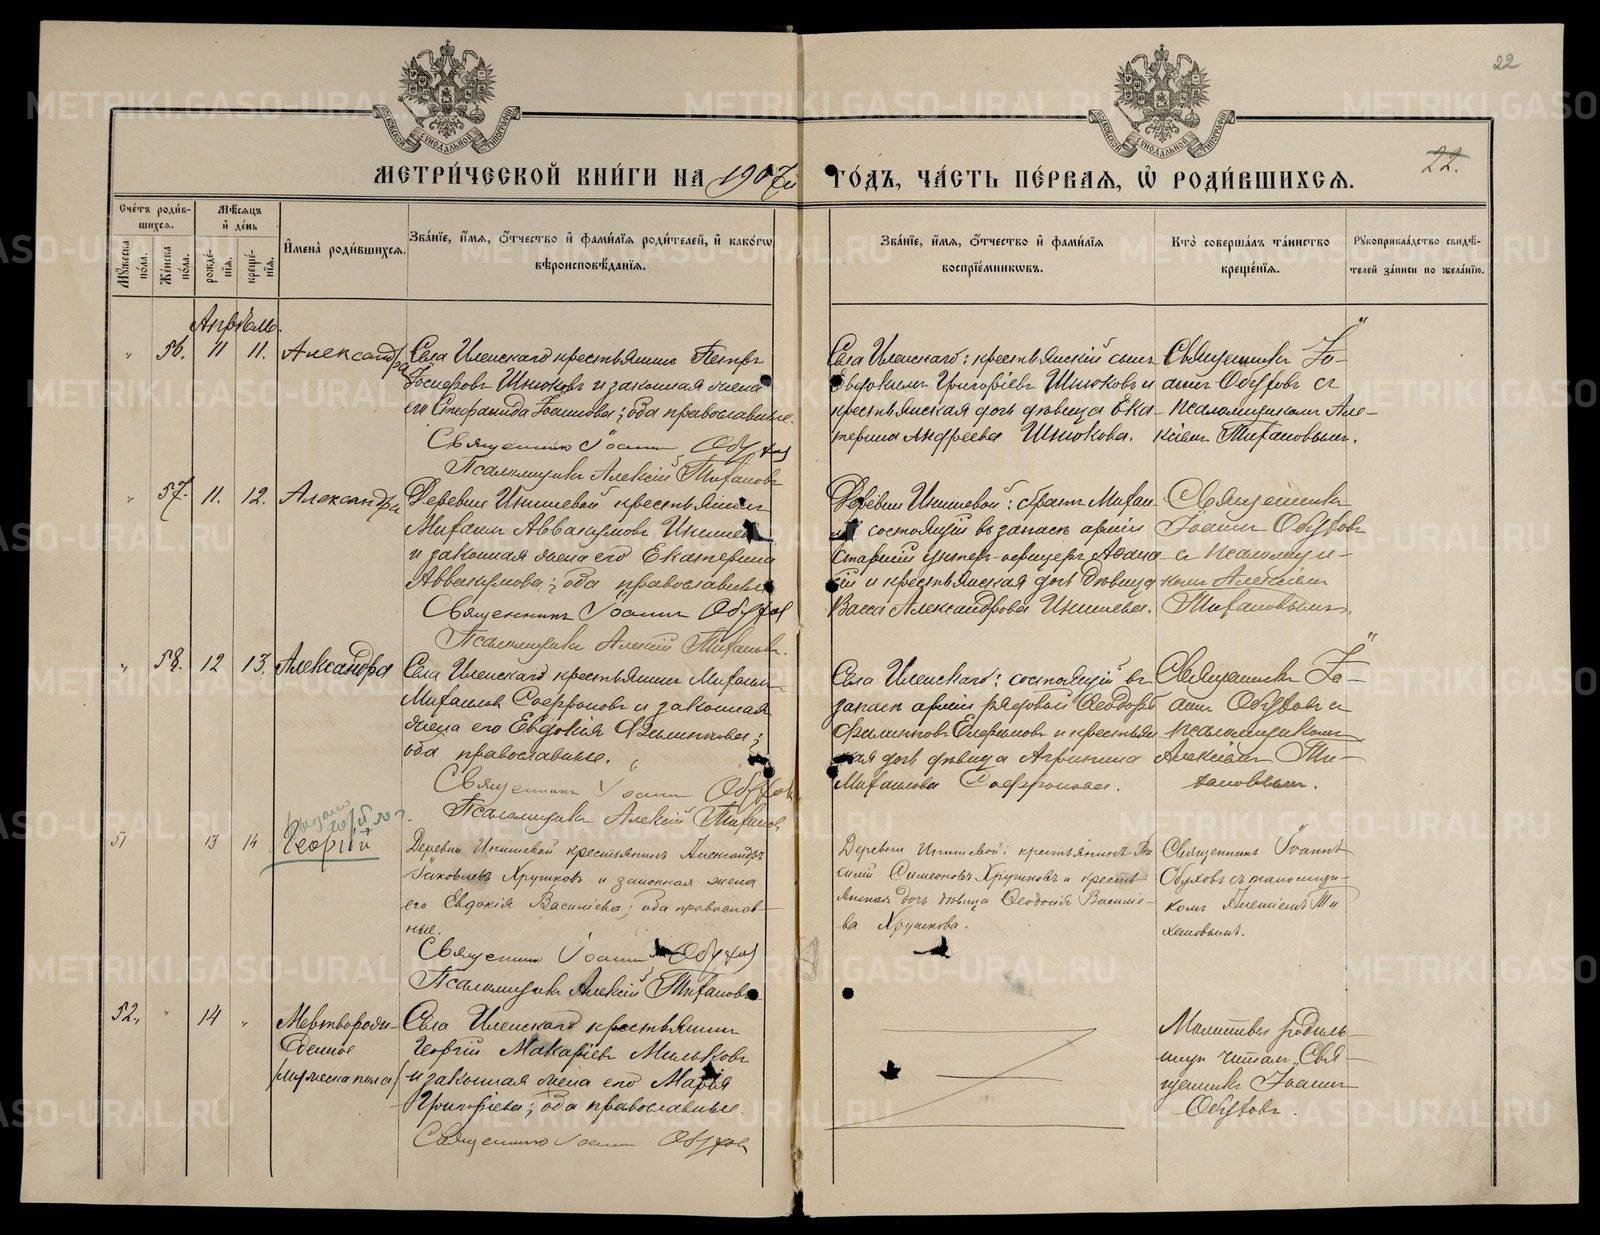 22
МОСКОВСКОЙ СѴНОДАЛЬНОЙ ТИПОГРАФІИ
МОСКОВСКОЙ СѴНОДАЛЬНОЙ ТИПОГРАФІИ
МЕТРИ́ЧЕСКОЙ КНИ́ГИ НА 1907й ГО́ДЪ, ЧА́СТЬ ПЕ́РВАЯ, Ѿ РОДИ́ВШИХСЯ.
22.
Сче́тъ роди́в-
шихся.
Мꙋжеска по́ла.
Же́нска по́ла.
Мѣ́сяцъ
и҆ де́нь
рожде́-
нїя.
креще́-
нїя.
И҆мена̀ роди́вшихся.
Зва́нїе, и҆́мя, ѻ҆́тчество и҆ фами́лїя роди́телей, и҆ како́гѡ
вѣроисповѣ́данїя.
Зва́нїе, и҆́мя, ѻ҆́тчество и҆ фами́лїя
воспрїе́мниковъ.
Кто̀ соверша́лъ та́инство
креще́нїя.
Рꙋкоприкла́дство свидѣ́-
телей за́писи по жела́нїю.
Апрѣль.
" 56. 11 11. Александра
Села Иленскаго крестьянинъ Петръ
Іосифовъ Шнюковъ и законная жена
его Стефанида Іоаннова; оба православные.
Священникъ Іоаннъ Обуховъ
Псаломщикъ Алексій Тихановъ
Села Иленскаго: крестьянскій сынъ
Евдокимъ Григоріевъ Шнюковъ и
крестьянская дочь дѣвица Ека-
терина Андреева Шнюкова.
Священникъ Іо-
аннъ Обуховъ съ
псаломщикомъ Але-
ксіемъ Тихановымъ.
" 57. 11. 12. Александра
Деревни
крестьянинъ
Михаилъ Аввакумовъ
и законная жена его Екатерина
Аввакумова; оба православные
Священникъ Іоаннъ Обуховъ
Псаломщикъ Алексій Тихановъ.
Деревни
состоящій въ запасѣ арміи
Старшій унтеръ-офицеръ
и крестьянская дочь дѣвица
Васса Александрова
Священникъ
Іоаннъ Обуховъ
съ псаломщи-
комъ Алексіемъ
Тихановымъ.
" 58. 12 13. Александра
Села Иленскаго крестьянинъ Михаилъ
Михаиловъ Софроновъ и законная
жена его Евдокія Филиппова;
оба православные.
Священникъ Іоаннъ Обуховъ
Псаломщикъ Алексій Тихановъ
Села Иленскаго: состоящій въ
запасѣ арміи рядовой Ѳеодоръ
Филипповъ и крестьян
ская дочь дѣвица Агрипина
Михаилова Софронова.
Священникъ Іо-
аннъ Обуховъ съ
псаломщикомъ
Алексіемъ Ти-
хановымъ.
51 13 14 Георгій
Деревни крестьянинъ Александръ
Яковлевъ Хрушковъ и законная жена
его Евдокія Василіева; оба православ-
ные.
Священникъ Іоаннъ Обуховъ
Псаломщикъ Алексій Тихановъ
Деревни крестьянинъ Ва
силій Симеоновъ Хрушковъ и кресть
янская дочь дѣвица Ѳеодосія Василіе-
ва Хрушкова.
Священникъ Іоаннъ
Обуховъ съ псаломщи-
комъ Алексіемъ Ти
хановымъ.
52. " 14 " Мертворож-
денное
/мужеска пола/
Села Иленскаго крестьянинъ
Георгій Макаріевъ Мильковъ
и законная жена его Марія
Григоріева; оба православные.
Священникъ Іоаннъ Обуховъ
Молитвы родиль
ницѣ читалъ Свя-
щенникъ Іоаннъ
Обуховъ.
METRIKI.GASO-URAL.RU